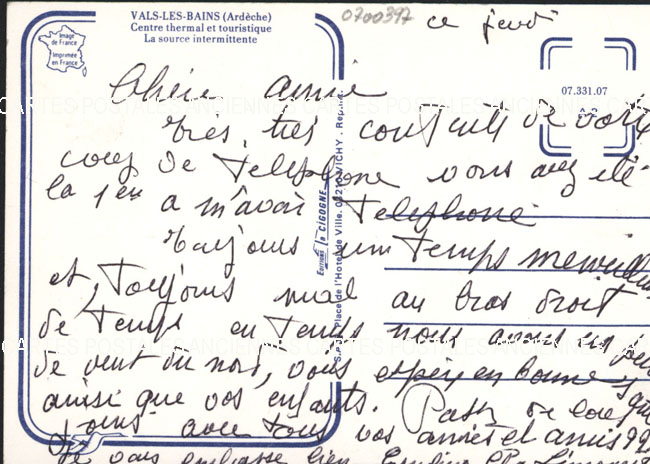 VALS-LES-BAINS (Ardèche)
Centre thermal et touristique
La source intermittente
0700397
ce jeudi
Image de France
Imprimée en France
07.331.07
Chère amie
très, très contente de votre
coup de telephone vous avez été
la 1ère a m'avoir telephoné
toujours un temps merveilleux
et, toujours mal au bras droit
de temps en temps nous avons un peu
de vent du nord, vous
ainsi que vos enfants.
avec tous vos amies et amis
Je vous embrasse bien
Éditions la CIGOGNE
Place de l'Hotel de Ville. 03210 VICHY. Repr. int.
CARTES POSTALES ANCIENNES CARTES POSTALES ANCIENNES
CARTES POSTALES ANCIENNES CARTES POSTALES ANCIENNES